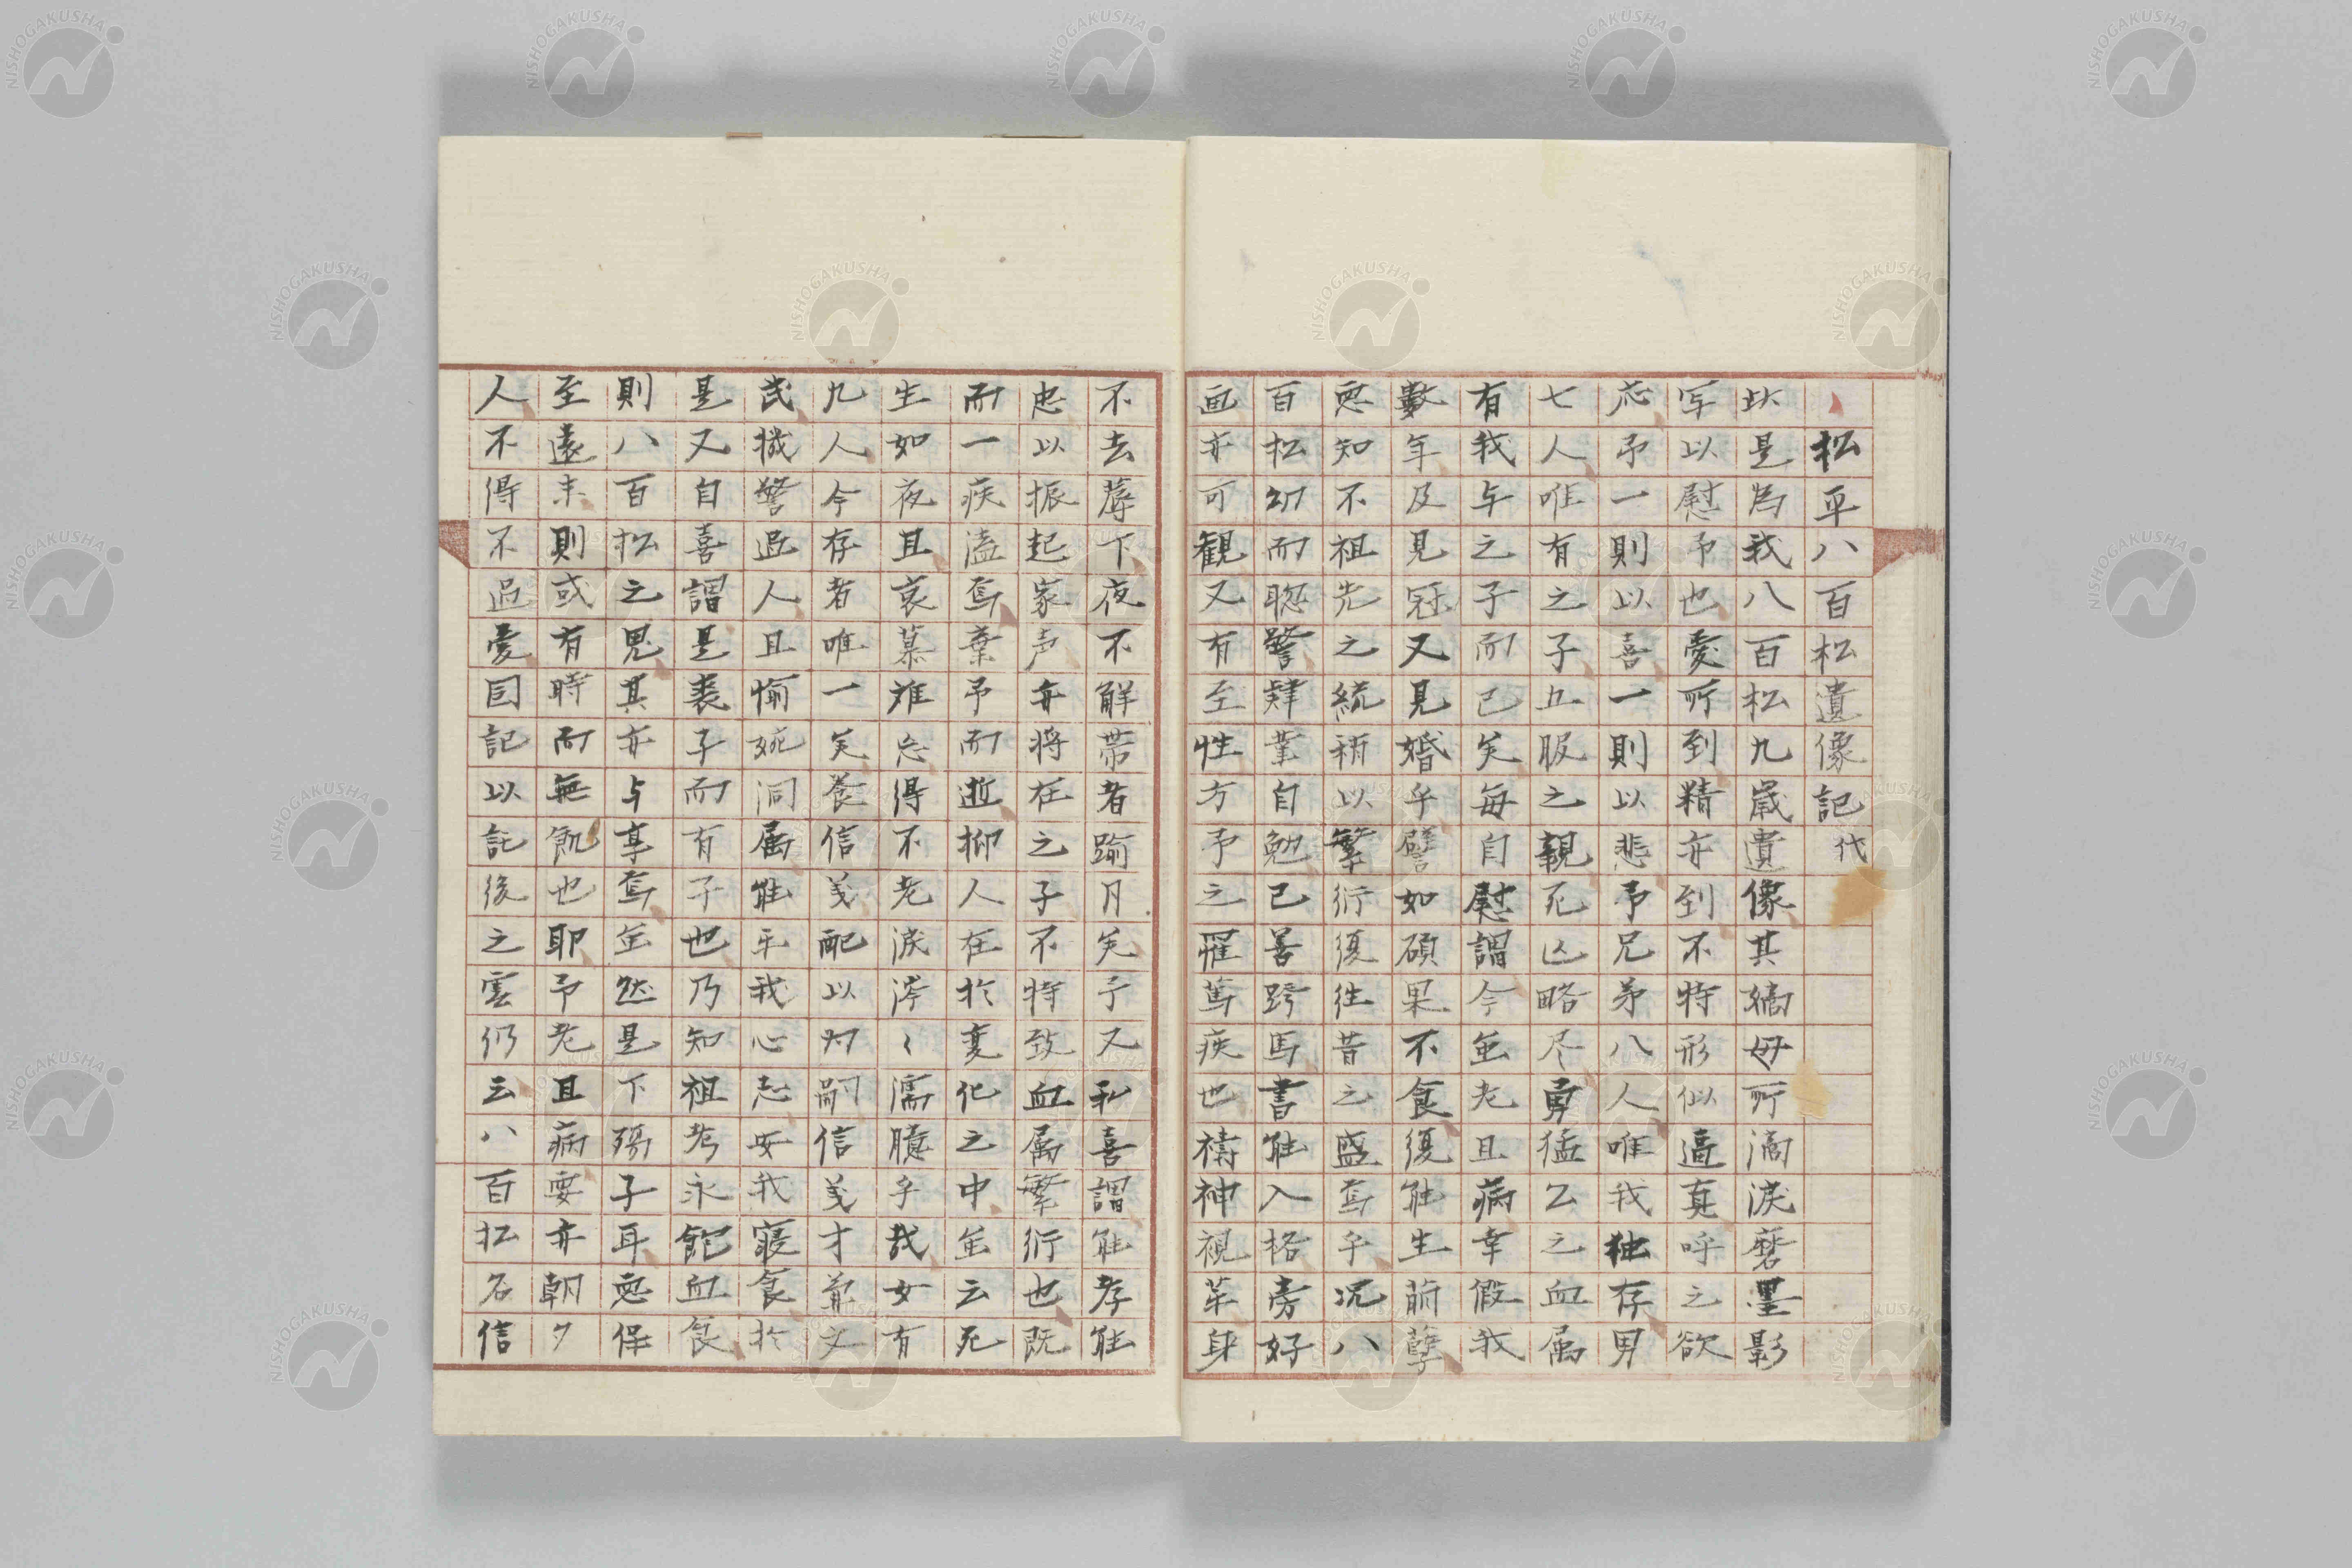 松平八百松遺像記 代
此是為我八百松九歳遺像其嫡母所滴涙磨墨影
写以慰予也愛所到精亦到不特形似逼真呼之欲
応予一則以喜一則以悲予兄弟八人唯我独存男
七人唯有之子五服之親死亡略尽勇猛公之血属
有我与之子而已矣毎自慰謂今無老且病幸假我
數年及見冠又見婚乎譬如碩果不食復能生萠孽
悪知不祖先之統稍以繁衍復往昔之盛焉乎况八
百松幼而聡警肆業自勉已善跨馬書能入格旁好
画亦可観又有至性方予之罹篤疾也禱神視茶身
不去蓐下夜不解帯者踰月矣予又私喜謂能孝能
忠以振起家声亦将在之子不特致血属繁衍也既
而一疾溘焉棄予而逝抑人在於変化之中無云死
生如夜旦哀慕难忘得不老涙滂〻濡臆乎哉女有
九人今存者唯一矣養信義配以為嗣信義才兼文
武機警過人且愉婉洞属能平我心志安我寝食於
是又自喜謂是喪子而有子也乃知祖考永飽血食
則八百松之鬼其亦与享焉無然是下殤子耳悪保
至遠未則或有時而無飢也耶予老且病要亦朝夕
人不得不過愛因記以託後之雲仍云八百松名信